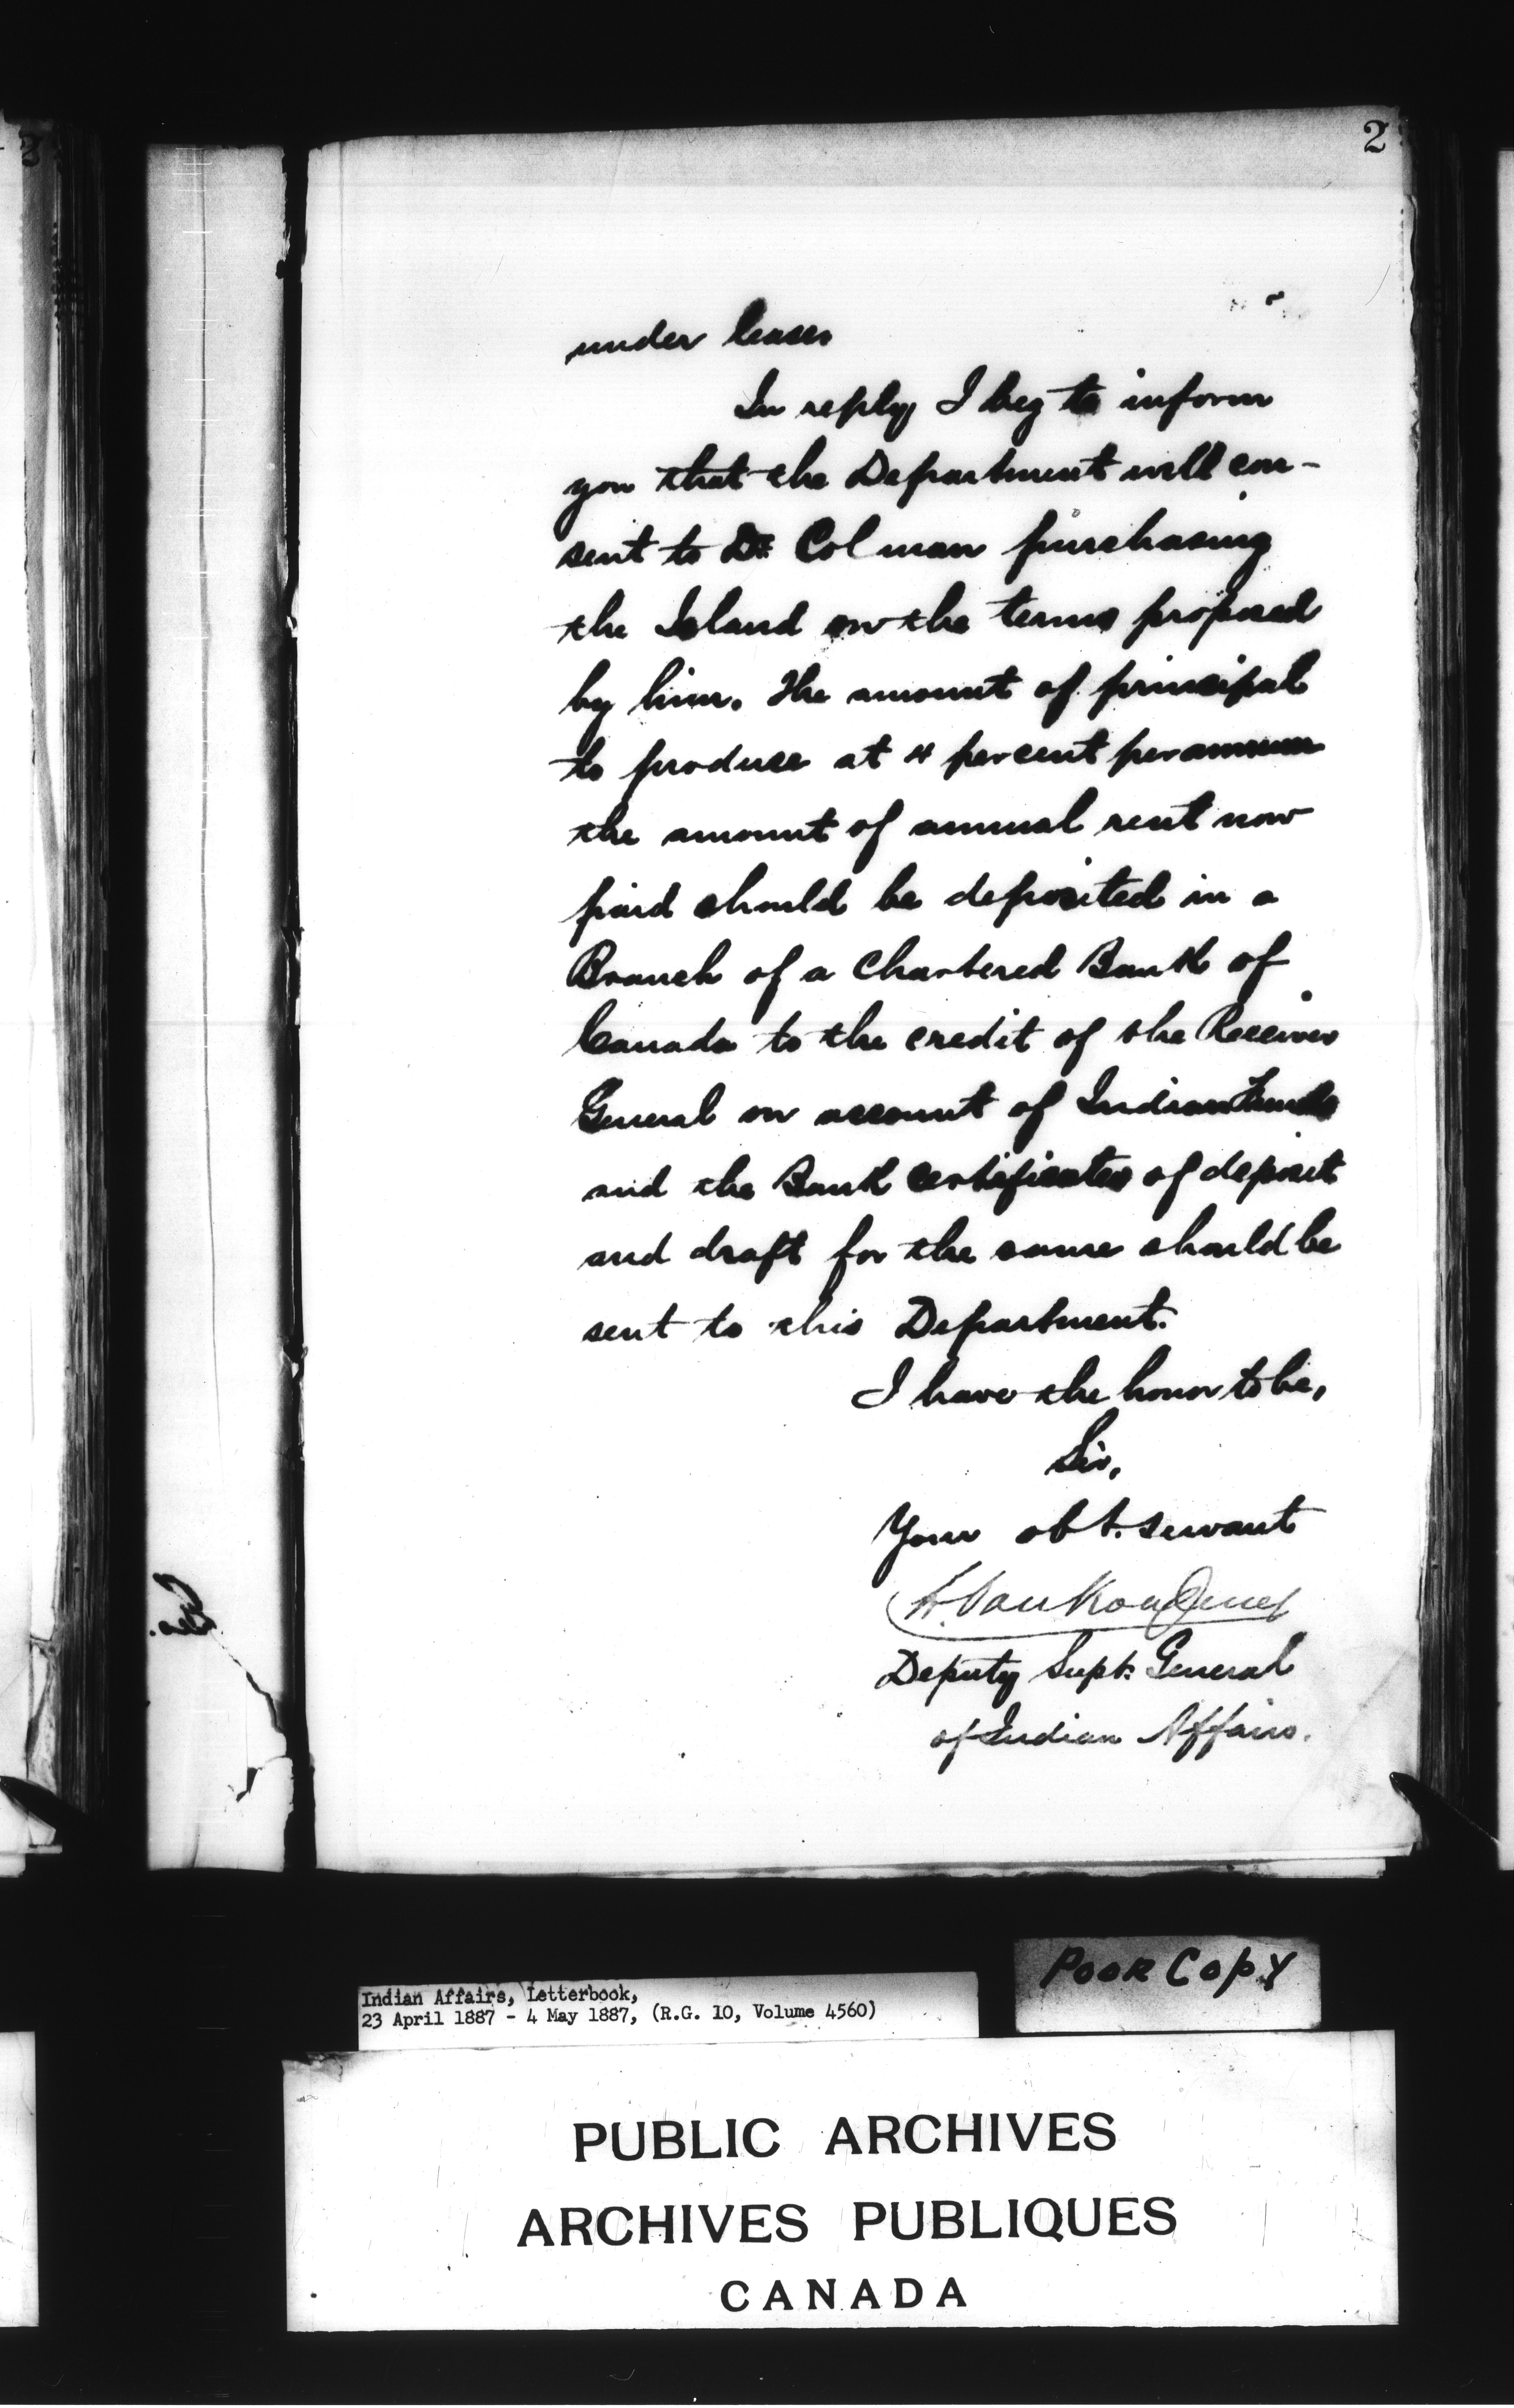 2
under lease.
In reply I beg to inform
you that the Department will con-
sent to Dr. Colman purchasing
the Island on the terms proposed
by him. The amount of principal
to produce at 4 percent per annum
the amount of annual rent now
paid should be deposited in a
Branch of a Chartered Bank of
Canada to the credit of the Receiver
General on account of Indian Funds
and the Bank certificates of deposit
and draft for the same should be
sent to this Department.
I have the honor to be,
Sir,
Your obt. servant
L. VanKoughnet
Deputy Supt. General
of Indian Affairs.
Geo.
POOR COPY
Indian Affairs, Letterbook,
23 April 1887 - 4 May 1887, (R.G. 10, Volume 4560)
PUBLIC ARCHIVES
ARCHIVES PUBLIQUES
CANADA